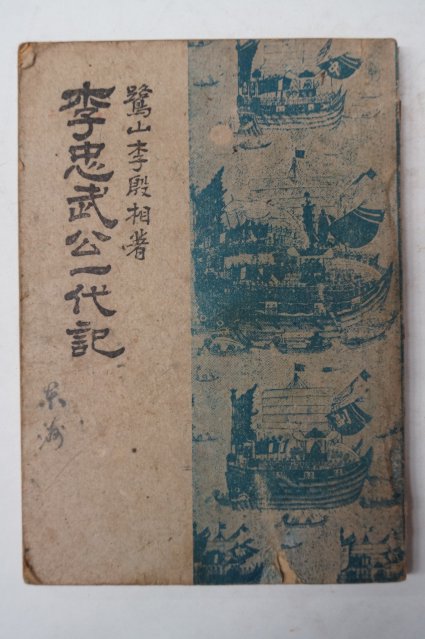 鷺山李殷相著
李忠武公一代記